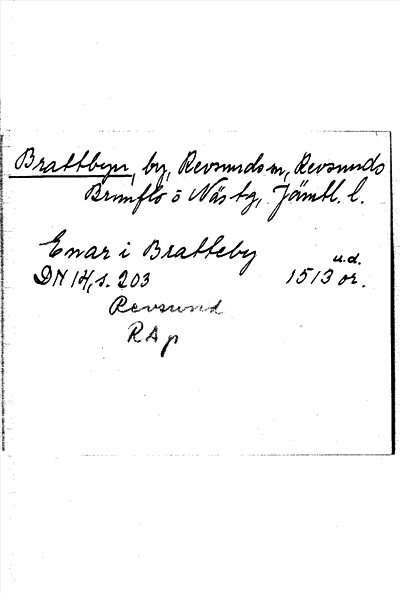 Brattbyn, by, Revsunds sn, Revsunds
Brunflo o Näs tg, Jämtl. l.
Enar i Bratteby
u.d.
DN 14, s. 203 1513 or.
Revsund
RAp